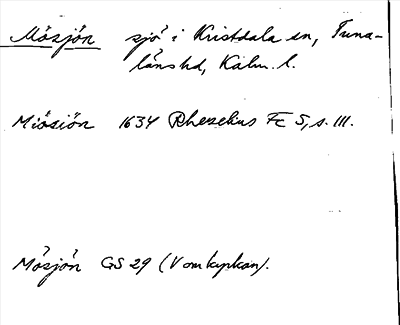 Mösjön sjö i Kristdala sn, Tuna-
läns hd, Kalm. l.
Miösiön 1634 Rhezelius Fc 5, s. 111.
Mösjön GS 29 (V om kyrkan).